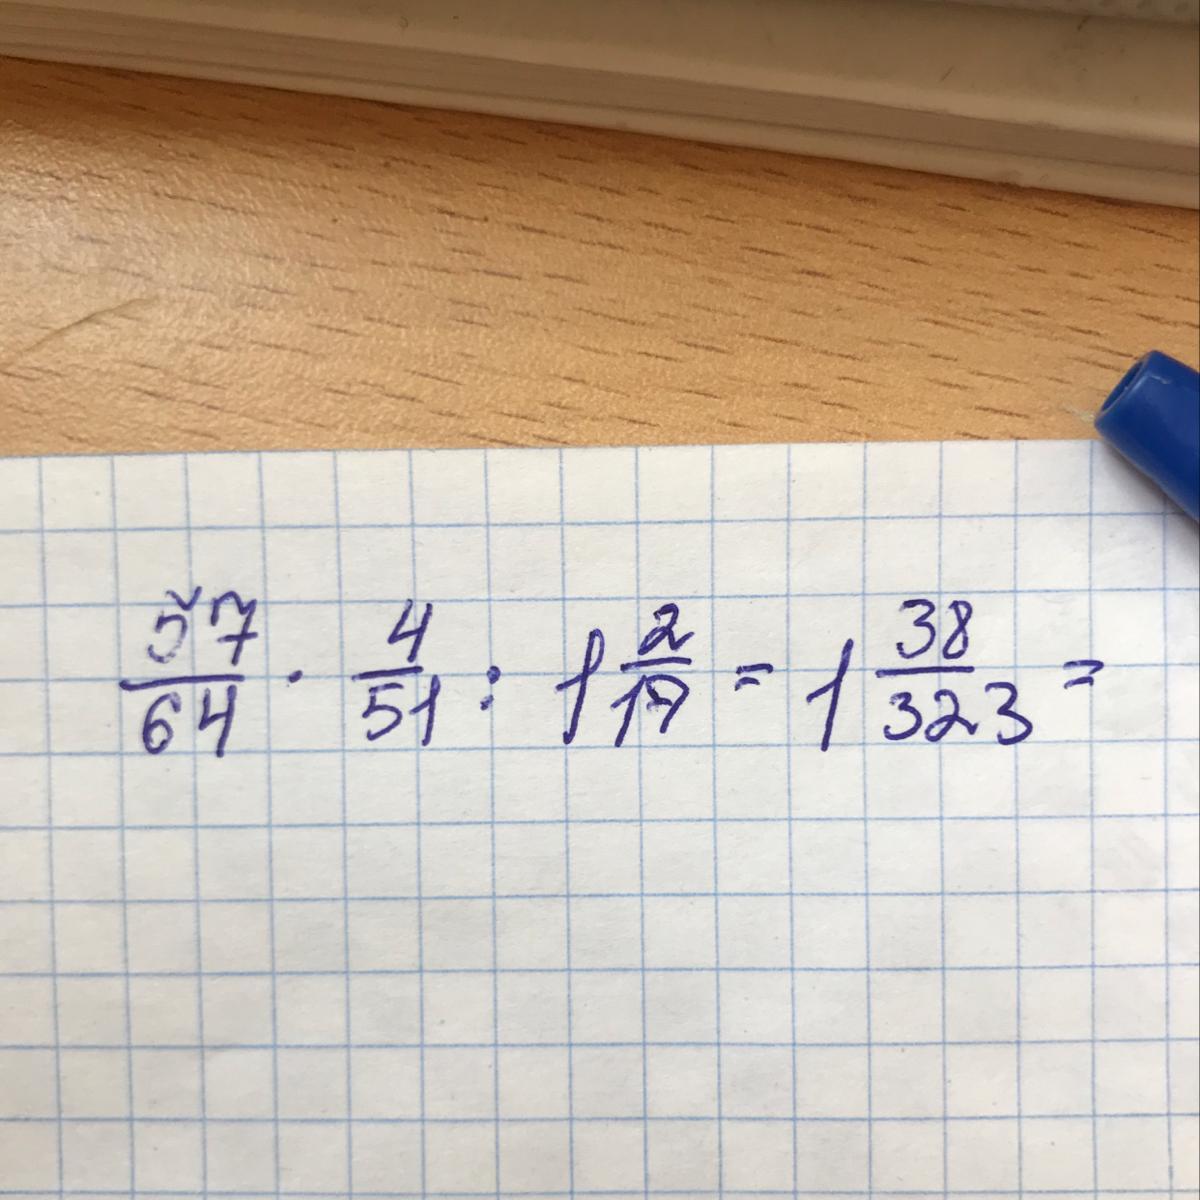 57/64 · 4/51 : 1 2/17 = 1 38/323 =